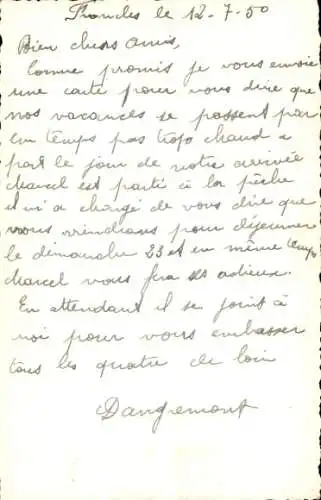 le 12-7-50
Bien chers amis,
Comme promis je vous envoie
une carte pour vous dire que
nos vacances se passent par
un temps pas trop chaud a
part le jour de notre arrivée
Marcel est parti à la pêche
il m'a chargé de vous dire que
nous viendrions pour déjeuner
le dimanche 23 et en même temps
Marcel vous fera ses adieux.
En attendant il se joint à
moi pour vous embasser
tous les quatre de loin
Dangremont